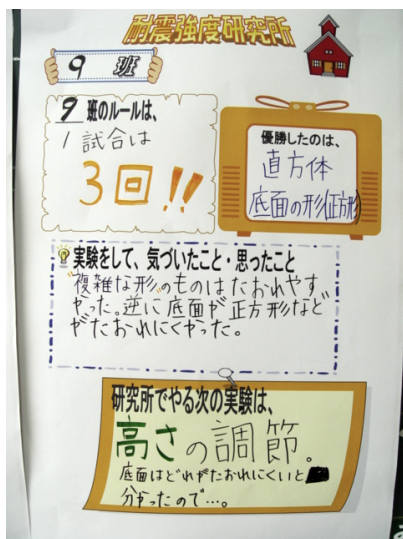 耐震強度研究所
9 班
9 班のルールは、
1試合は
3回!!
優勝したのは、
直方体
底面の形(正方形)
実験をして、気づいたこと・思ったこと
"複雑な形"のものはたおれやす
かった。逆に底面が正方形など
がたおれにくかった。
研究所でやる次の実験は、
高さの調節。
底面はどれがたおれにくいと
分かったので…。